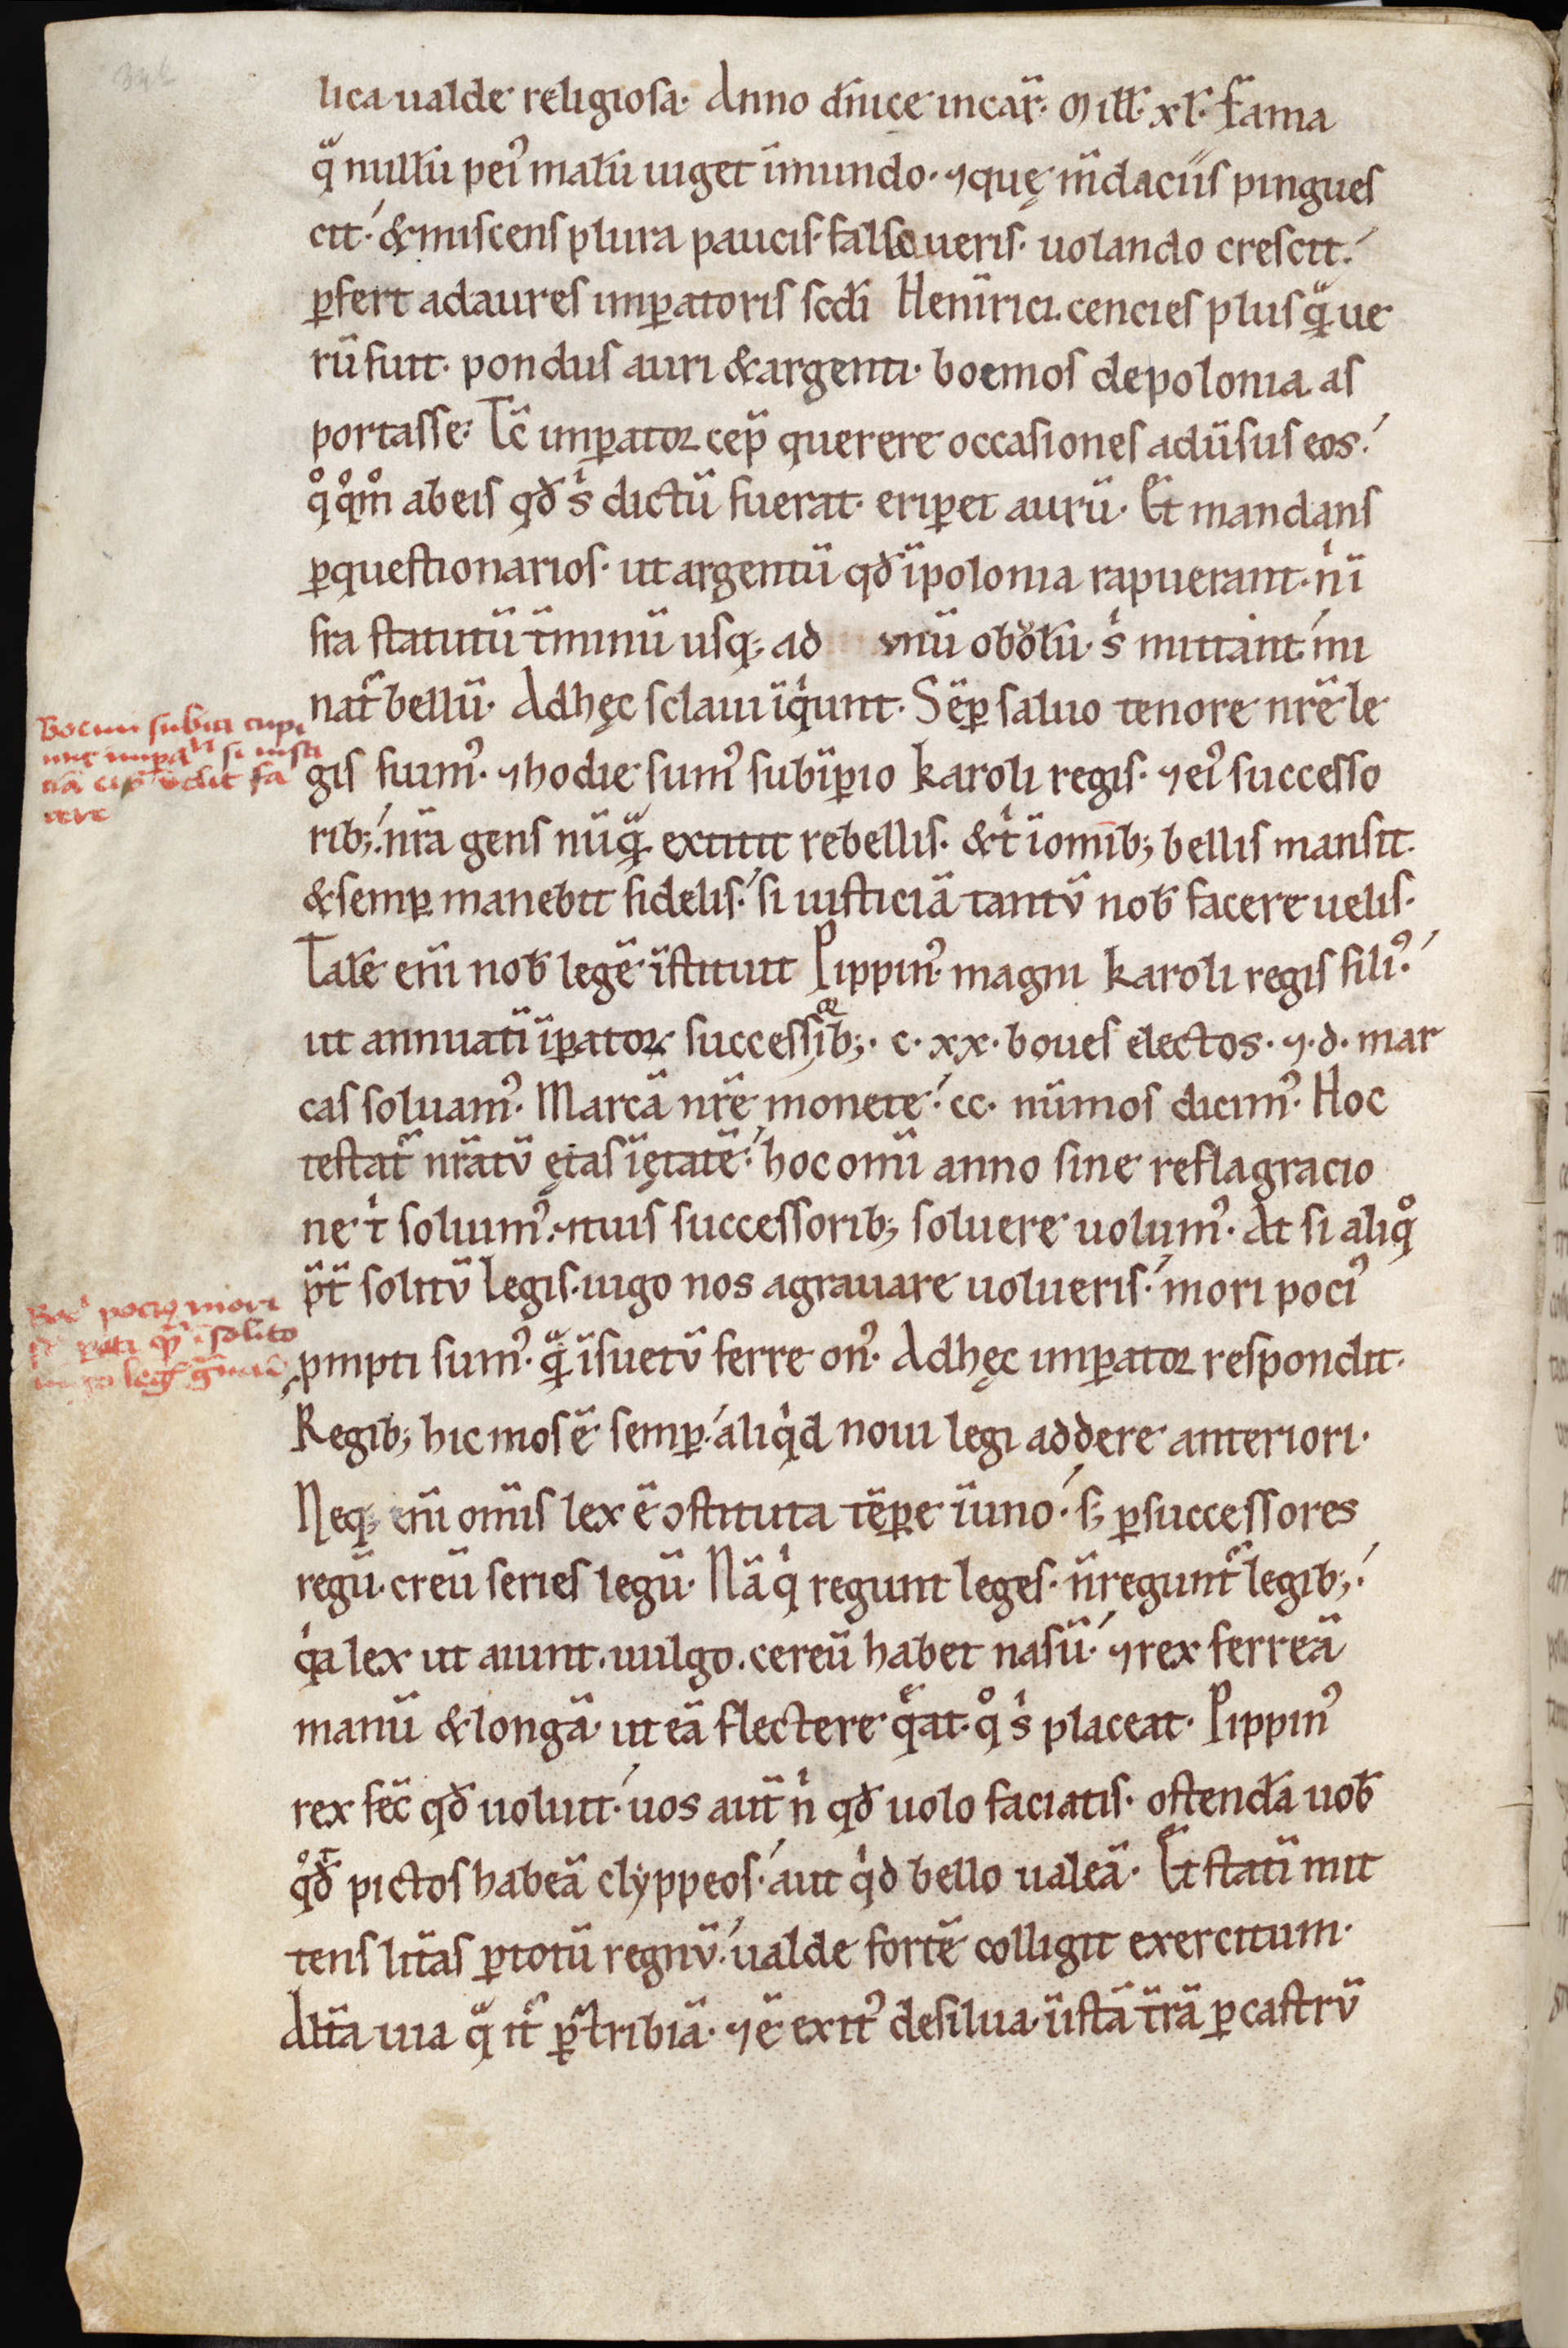 lica ualde religiosa. Anno dn̄icę incar̄. Mill̄. xl. Fama
q̄ nullū pei᾽ malū uiget ī mundo. ⁊ quę m̄daciis pingues
cit. & miscens plura paucis. falsa ueris. uolando crescit.
ꝑfert ad aures imꝑatoris scd̄i Henr̄ici. cencies plus qͣ̄ ue
rū fuit. pondus auri & argenti. boemos de polonia as
portasse. Tc̄ imꝑator cep̄ querere occasiones aduͥsus eos.
qͦ qͦm̊ ab eis qđ sͥ dictū fuerat. eriꝑet aurū. Et mandans
ꝑ questionarios. ut argentū qđ ī polonia rapuerant. nͥ ī
fra statutū t̄minū usq; ad vnū obolū. sͥ mittant. mi
nat̄ bellū. Ad hęc sclaui īqͥunt. Sēꝑ saluo tenore nr̄ę le
gis fuim᾽. ⁊ hodie sum᾽ sub īꝑio karoli regis. ⁊ ei᾽ successo
rib;. nr̄a gens nūqͣ̄ extitit rebellis. & tͥ ī om̄ib; bellis mansit.
& semꝑ manebit fidelis. si iusticiā tantū nob̄ facere uelis.
Talē eni̅ nob̄ legē īstituit Pippin᾽ magni karoli regis fili᾽.
ut annuatī īꝑatoꝝ successorib;. c. xx. boues electos. ⁊. d. mar
cas soluam᾽. Marcā nr̄ę monete. cc. nūmos dicim᾽. Hoc
testat̄ nr̄atū ętas ī ętatē. hoc omī anno sine reflagracio
ne tͥ soluim᾽. ⁊ tuis successorib; soluere uolum᾽. At si aliqͦ
p̄t̄ solitū legis. iugo nos agrauare uolueris. mori poci᾽
ꝓmpti sum᾽. qͣ̄ īsuetū ferre on᾽. Ad hęc imꝑator respondit.
Regib; hic mos ē semꝑ. aliqͥd noui legi addere anteriori.
Neq; eni̅ om̄is lex ē ꝯstituta tēꝑe ī uno. s; ꝑ successores
regū. creu̅ series legū. Nā qͥ regunt leges. n̄ regunt̄ legib;.
qͥa lex ut aiunt. uulgo. cereū habet nasū. ⁊ rex ferreā
manū & longā ut eā flectere qͣ̄at. qͦ sͥ placeat. Pippin᾽
rex fec̄ qđ uoluit. uos aut̄ nͥ qđ uolo faciatis. ostendā uob̄
qͦđ pictos habeā clyppeos. aut qͥd bello ualeā. Et statī mit
tens litt̄as ꝑ totū regnū. ualde fortē colligit exercitum.
Alt̄a uia qͣ it̄ ꝑ tribiā. ⁊ ē exit᾽ de silua ī istā t̄rā ꝑ castrū
Boemi subici cupi
unt impatͥ si iusti
tiā eis uelit fa
cere
poci᾽ mori
pati qͣ̄ īsolito
iugo